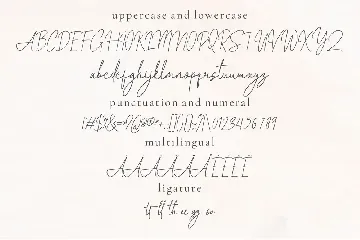 uppercase and lowercase
ABCDEFGHIJKLMNOPQRSTUVWXYZ
abcdefghijklmnopqrstuvwxyz
punctuation and numeral
0123456789
multilingual
AAAAAAEEEE
ligature
tt ff th ee yz oo